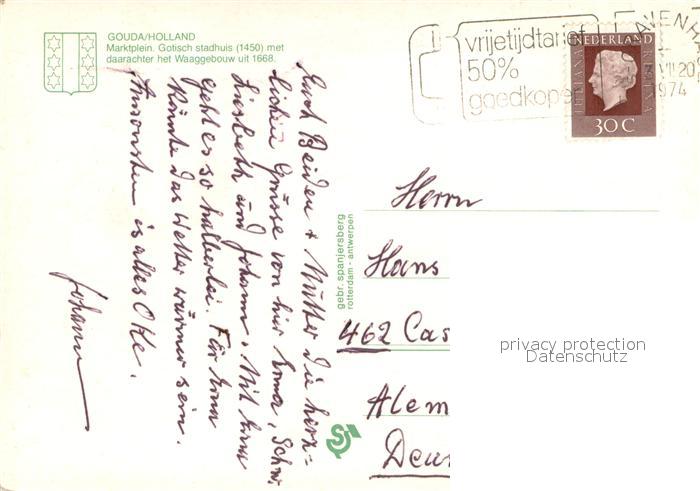 GOUDA/HOLLAND
Marktplein. Gotisch stadhuis (1450) met
daarachter het Waaggebouw uit 1668.
vrijetijdtarief
50%
goedkoper
AVENH
VII 20
1974
NEDERLAND
JULIANA REGINA
30 C
Euch Beiden + Mutter die herz=
lichen Grüsse von hier Erna, Schw.
Liesbeth und Johann. Mit Erna
geht es so halberlei. Für Erna
könnte das Wetter wärmer sein.
Ansonsten is alles Oke.
Johann
gebr. spanjersberg
rotterdam - antwerpen
Herrn
Hans
462 Cas
Alem
Deu
privacy protection
Datenschutz